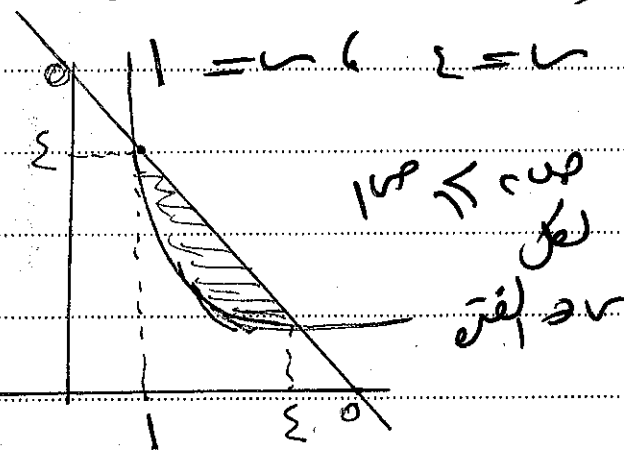 س = ٤ ، س = ١
ص٢ ≥ ص١
لكل
س ∈ الفترة
٥
٤
١
٤
٥